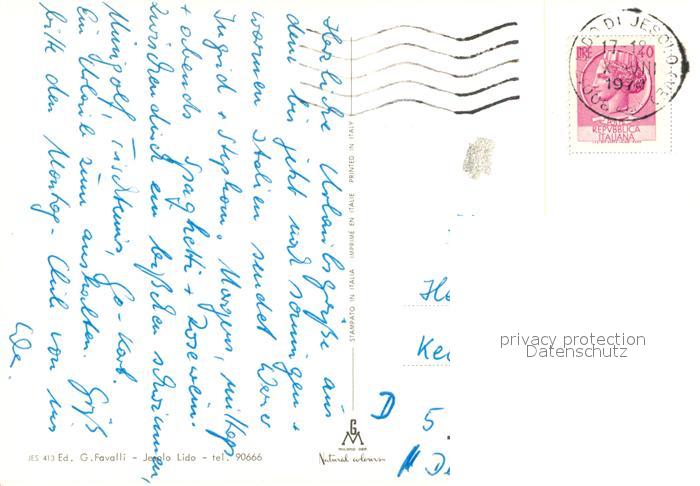 Herzliche Urlaubsgrüße aus
dem bis jetzt noch sonnigen +
warmen Italien sendet Dora
Ingrid + Stephan. Morgens, mittags
+ abends Spaghetti + Rosewein.
Zwischendurch ein bißchen schwimmen,
Minigolf, Tischtennis, Go-Kart.
Ein Urlaub zum aushalten. Grüß
bitte den Montag-Club von uns
STAMPATO IN ITALIA IMPRIME EN ITALIE PRINTED IN ITALY
LIRE 40
17-18
REPVBBLICA
ITALIANA
He
Ke
D 5
privacy protection
Datenschutz
JES 413 Ed. G. Favalli - Jesolo Lido - tel. 90666
G
M
MILANO DEP.
Natural colours